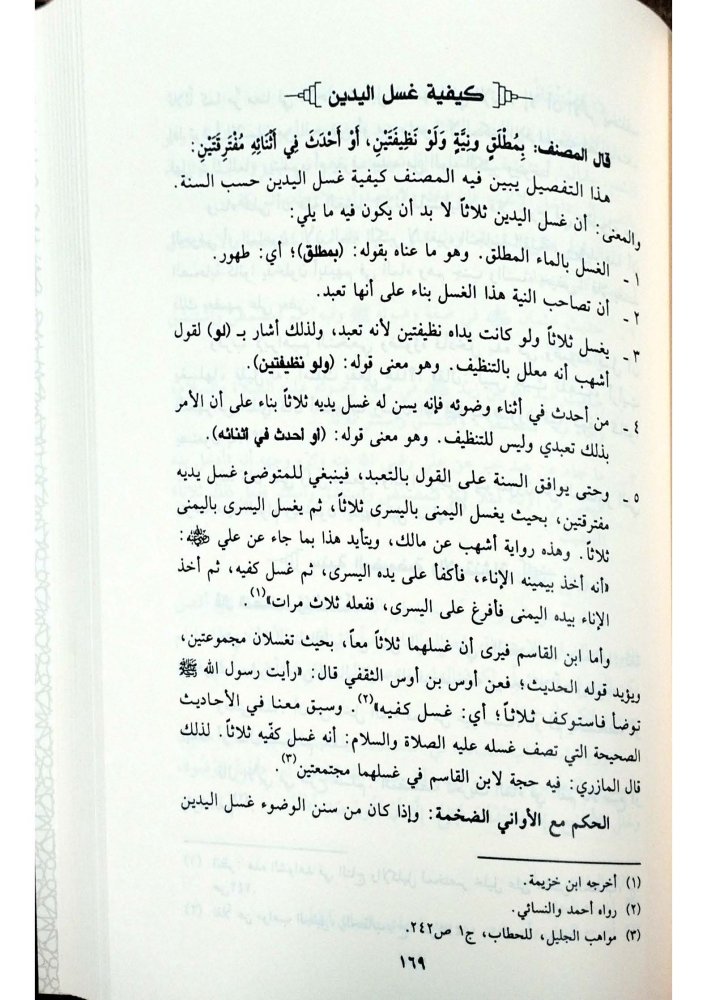 كيفية غسل اليدين
قال المصنف: بِمُطْلَقٍ ونِيَّةٍ وَلَوْ نَظِيفَتَيْنِ، أَوْ أَحْدَثَ فِي أَثْنَائِهِ مُفْتَرِقَتَيْنِ:
هذا التفصيل يبين فيه المصنف كيفية غسل اليدين حسب السنة.
والمعنى: أن غسل اليدين ثلاثاً لا بد أن يكون فيه ما يلي:
١ ـ الغسل بالماء المطلق. وهو ما عناه بقوله: (بمطلق)؛ أي: طهور.
٢ ـ أن تصاحب النية هذا الغسل بناء على أنها تعبد.
٣ ـ يغسل ثلاثاً ولو كانت يداه نظيفتين لأنه تعبد، ولذلك أشار بـ (لو) لقول
أشهب أنه معلل بالتنظيف. وهو معنى قوله: (ولو نظيفتين).
٤ ـ من أحدث في أثناء وضوئه فإنه يسن له غسل يديه ثلاثاً بناء على أن الأمر
بذلك تعبدي وليس للتنظيف. وهو معنى قوله: (او احدث في اثنائه).
٥ ـ وحتى يوافق السنة على القول بالتعبد، فينبغي للمتوضئ غسل يديه
مفترقتين، بحيث يغسل اليمنى باليسرى ثلاثاً، ثم يغسل اليسرى باليمنى
ثلاثاً. وهذه رواية أشهب عن مالك، ويتأيد هذا بما جاء عن علي رضي الله عنه:
«أنه أخذ بيمينه الإناء، فأكفأ على يده اليسرى، ثم غسل كفيه، ثم أخذ
الإناء بيده اليمنى فأفرغ على اليسرى، ففعله ثلاث مرات»(١).
وأما ابن القاسم فيرى أن غسلهما ثلاثاً معاً، بحيث تغسلان مجموعتين،
ويؤيد قوله الحديث؛ فعن أوس بن أوس الثقفي قال: «رأيت رسول الله ﷺ
توضأ فاستوكف ثلاثاً؛ أي: غسل كفيه»(٢). وسبق معنا في الأحاديث
الصحيحة التي تصف غسله عليه الصلاة والسلام: أنه غسل كفّيه ثلاثاً. لذلك
قال المازري: فيه حجة لابن القاسم في غسلهما مجتمعتين(٣).
الحكم مع الأواني الضخمة: وإذا كان من سنن الوضوء غسل اليدين
(١) أخرجه ابن خزيمة.
(٢) رواه أحمد والنسائي.
(٣) مواهب الجليل، للحطاب، ج١ ص٢٤٢.
١٦٩